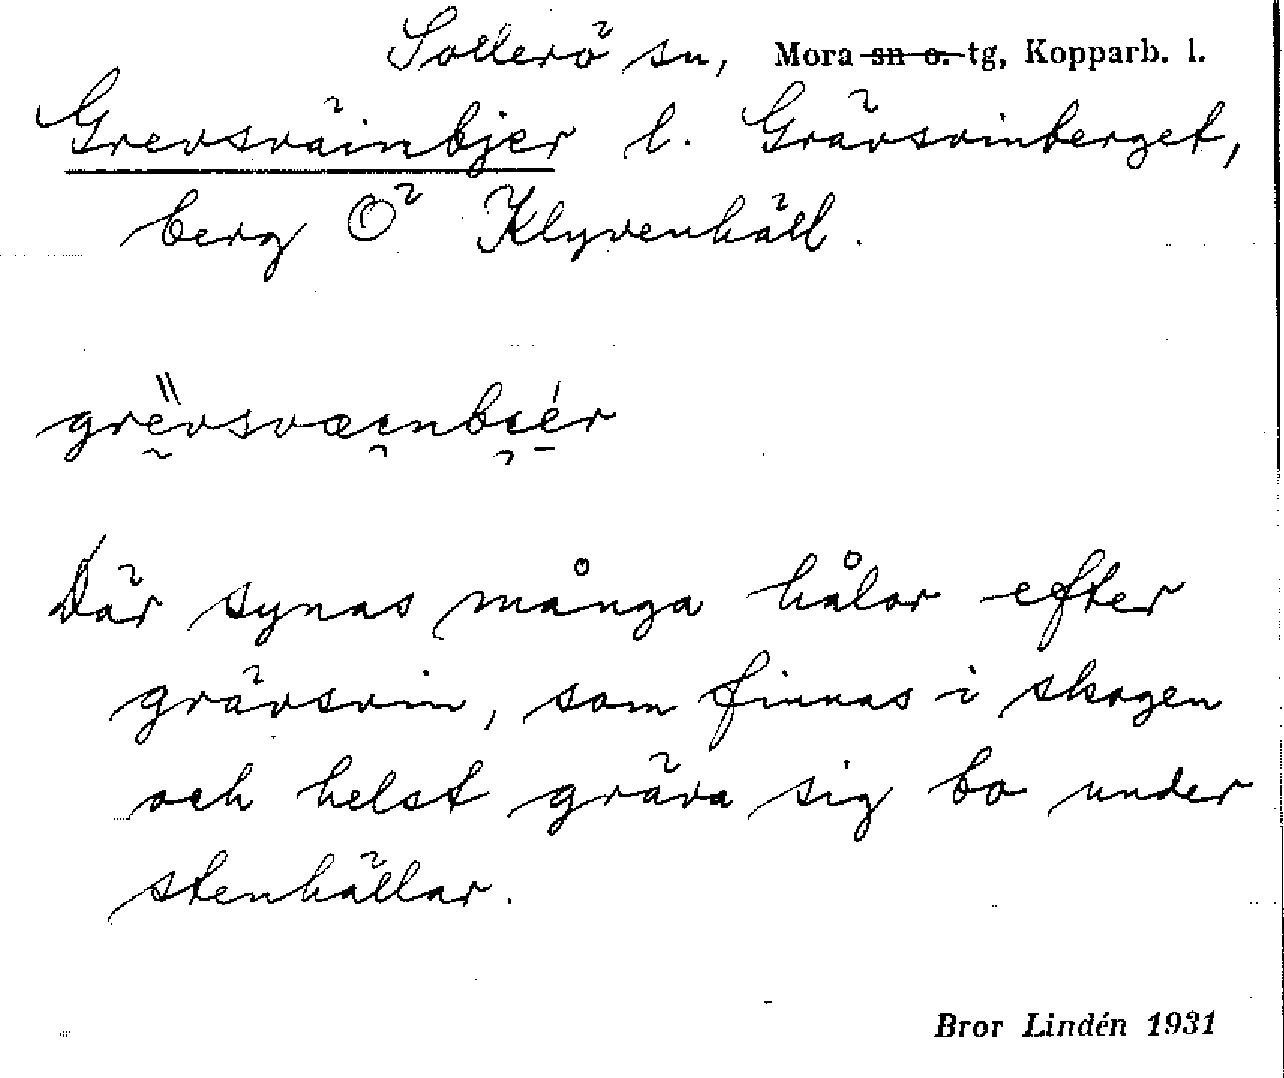 Sollerö sn, Mora ~~sn o.~~ tg, Kopparb. l.
Grevsväinbjer l. Grävsvinberget,
berg Ö Klyvenhäll.
grëvsvæınbıér
Där synas många hålor efter
grävsvin, som finnas i skogen
och helst gräva sig bo under
stenhällar.
Bror Lindén 1931